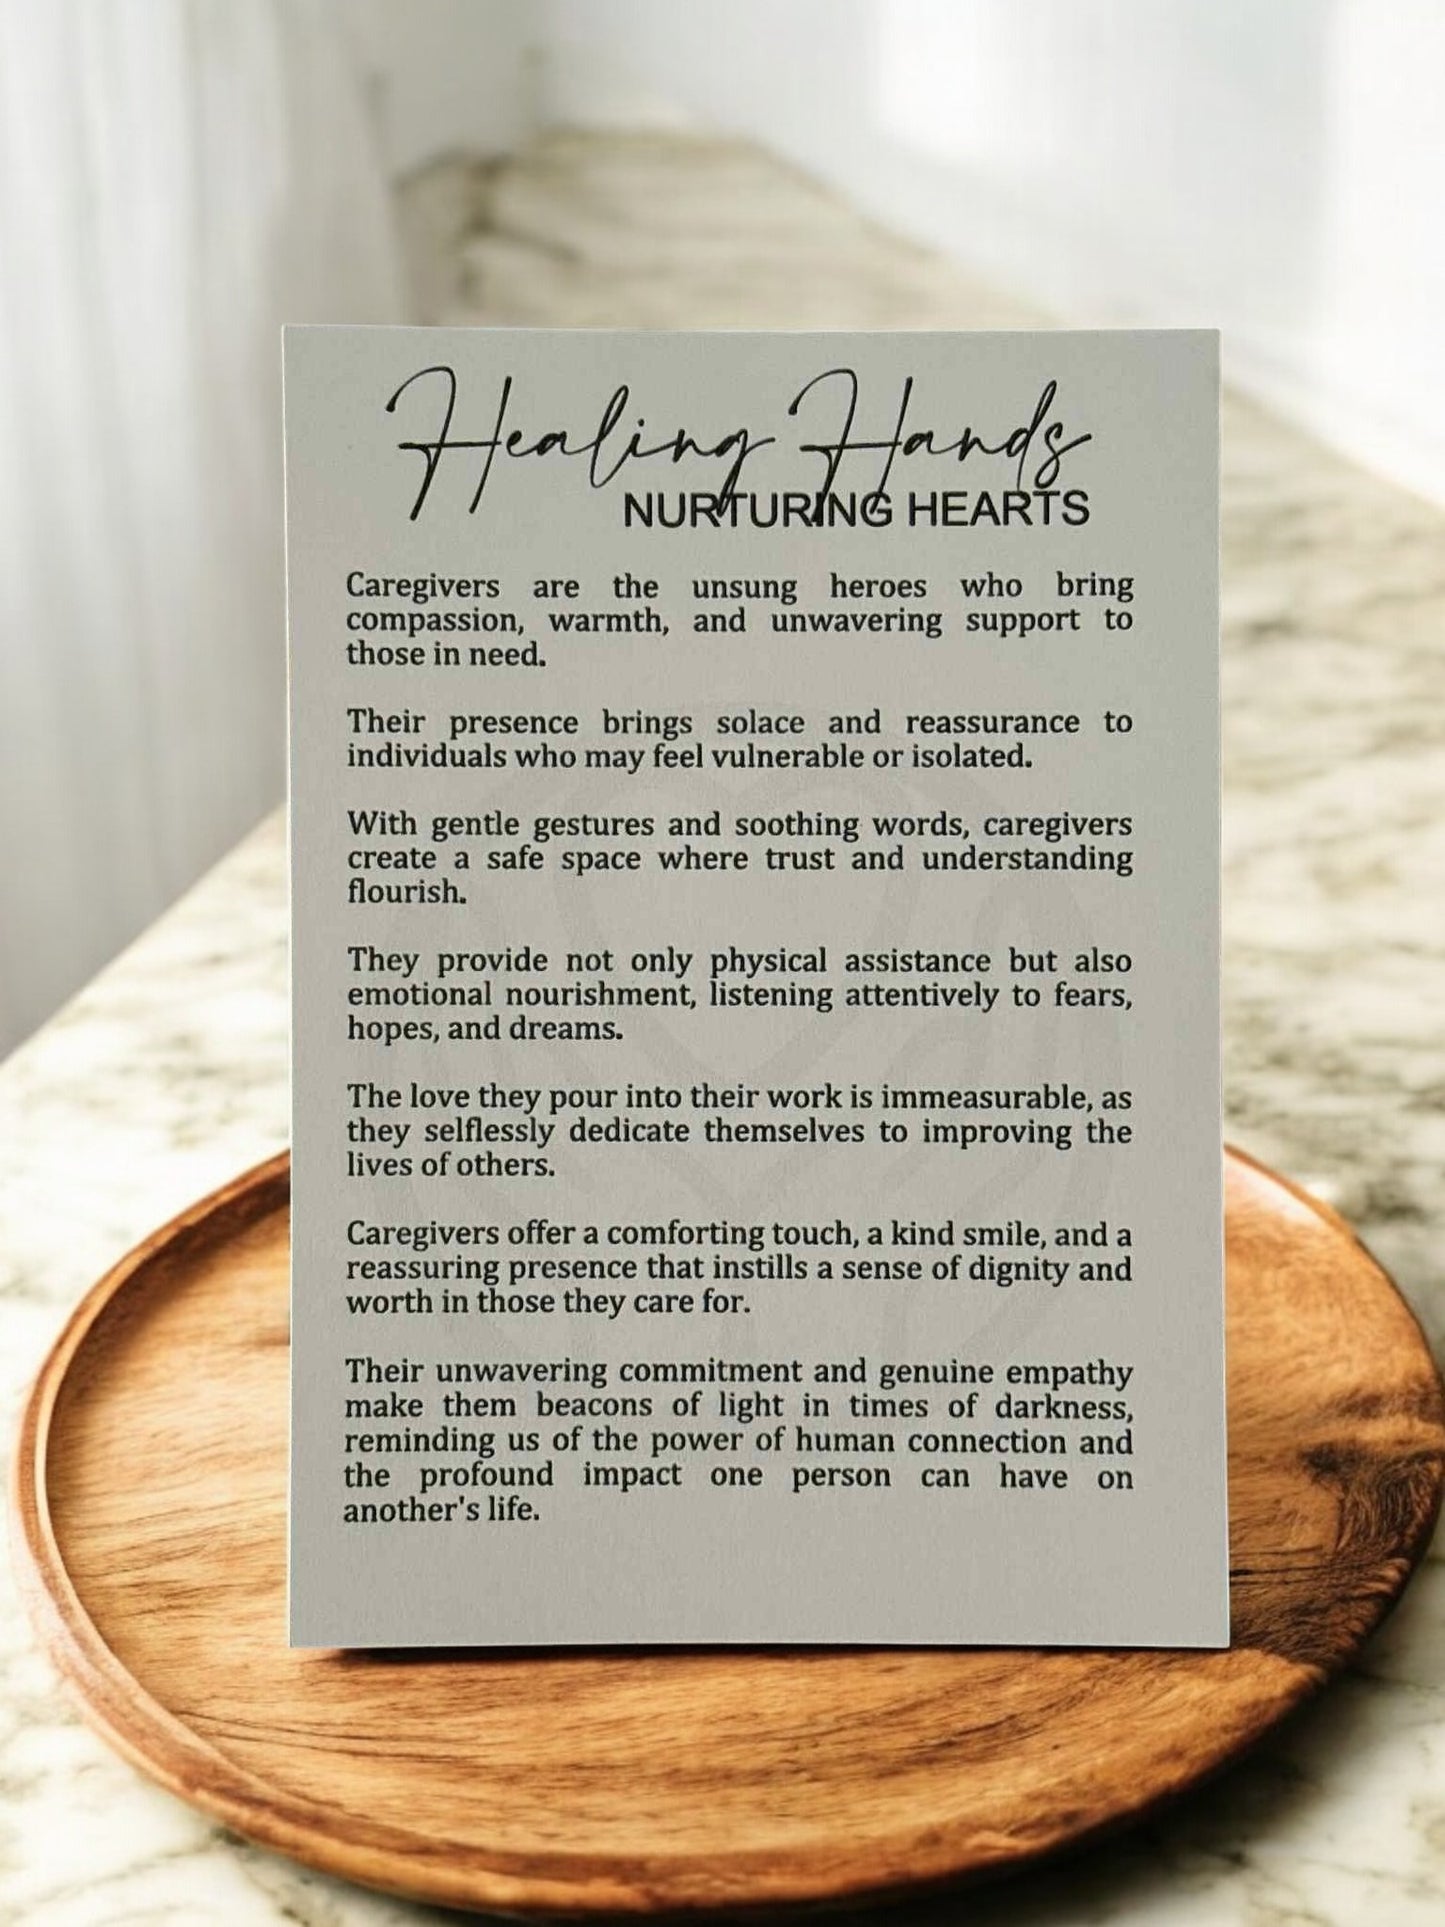 Healing Hands
NURTURING HEARTS
Caregivers are the unsung heroes who bring
compassion, warmth, and unwavering support to
those in need.
Their presence brings solace and reassurance to
individuals who may feel vulnerable or isolated.
With gentle gestures and soothing words, caregivers
create a safe space where trust and understanding
flourish.
They provide not only physical assistance but also
emotional nourishment, listening attentively to fears,
hopes, and dreams.
The love they pour into their work is immeasurable, as
they selflessly dedicate themselves to improving the
lives of others.
Caregivers offer a comforting touch, a kind smile, and a
reassuring presence that instills a sense of dignity and
worth in those they care for.
Their unwavering commitment and genuine empathy
make them beacons of light in times of darkness,
reminding us of the power of human connection and
the profound impact one person can have on
another's life.